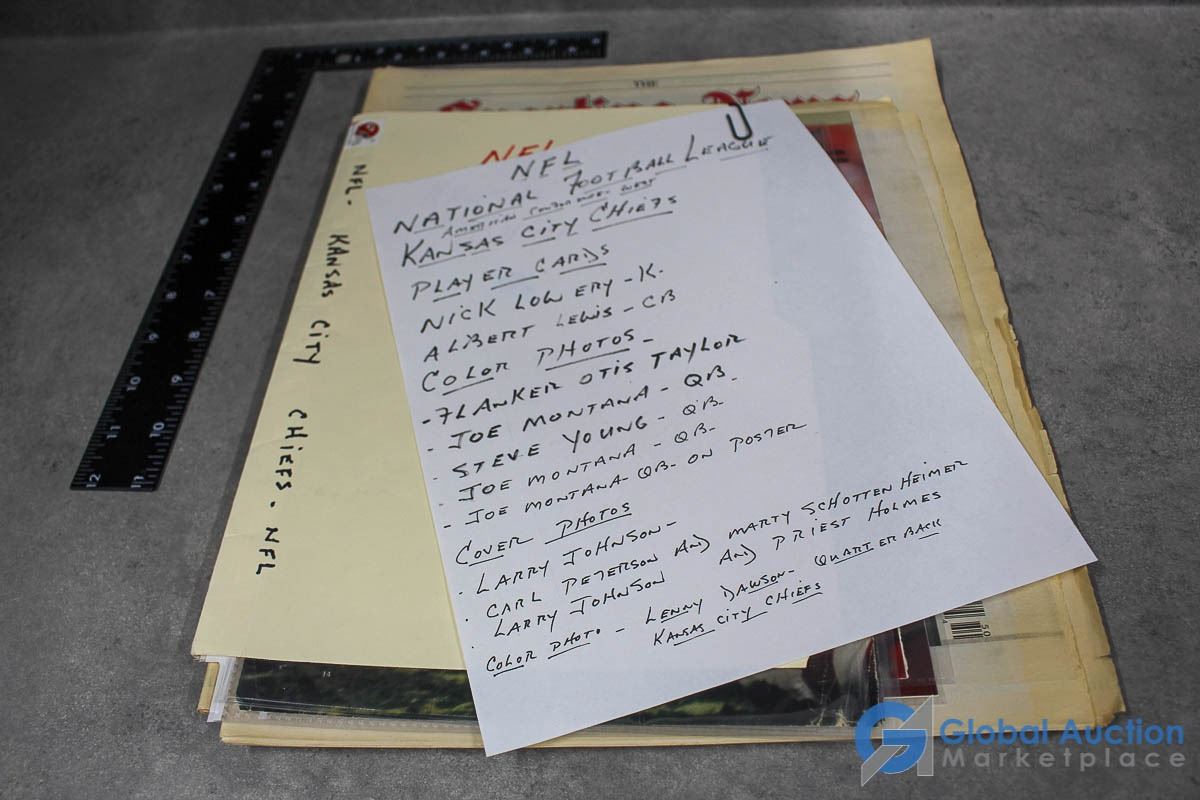 THE
Sporting News
NFL
NFL
NATIONAL FOOTBALL LEAGUE
AMERICAN CONFERENCE WEST
KANSAS CITY CHIEFS
PLAYER CARDS
NICK LOWERY - K.
ALBERT LEWIS - CB
COLOR PHOTOS -
- FLANKER OTIS TAYLOR
- JOE MONTANA - QB.
STEVE YOUNG - QB.
- JOE MONTANA - QB.
- JOE MONTANA - QB - ON POSTER
COVER PHOTOS
· LARRY JOHNSON -
· CARL PETERSON AND MARTY SCHOTTENHEIMER
· LARRY JOHNSON AND PRIEST HOLMES
COLOR PHOTO - LENNY DAWSON - QUARTERBACK
KANSAS CITY CHIEFS
NFL - KANSAS CITY CHIEFS - NFL
12 11 10 9 8 7 6 5 4 3
11 10 9 8 7 6 5 4
14
50
Global Auction
Marketplace